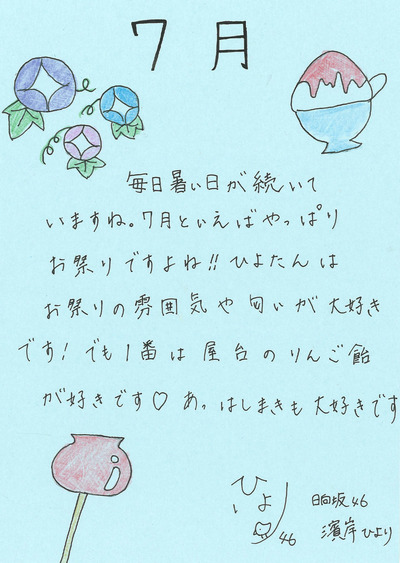 7月
毎日暑い日が続いて
いますね。7月といえばやっぱり
お祭りですよね!!ひよたんは
お祭りの雰囲気や匂いが大好き
です!でも1番は屋台のりんご飴
が好きです♡ あっはしまきも大好きです
ひより
46
日向坂46
濱岸ひより